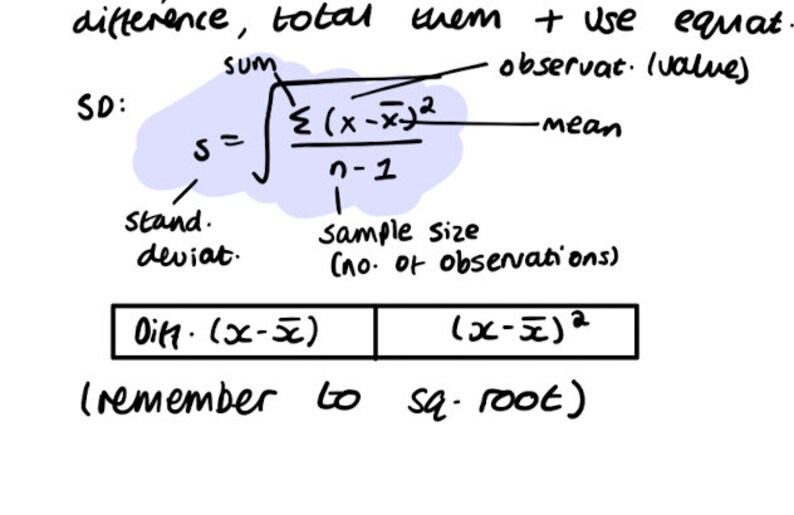 difference, total them + use equat.
sum
observat. (value)
SD:
s = √ Σ (x - x̄)² / n - 1
mean
stand.
deviat.
sample size
(no. of observations)
Diff. (x - x̄) (x - x̄)²
(remember to sq. root)